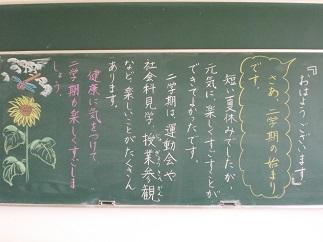 『おはようございます』
さあ、二学期の始まり
です。
短い夏休みでしたが、
元気に、楽しくすごすことが
できてよかったです。
二学期は、運動会や
社会科見学、授業参観
など、楽しいことがたくさん
あります。
健康に気をつけて
二学期も楽しくすごしま
しょう。